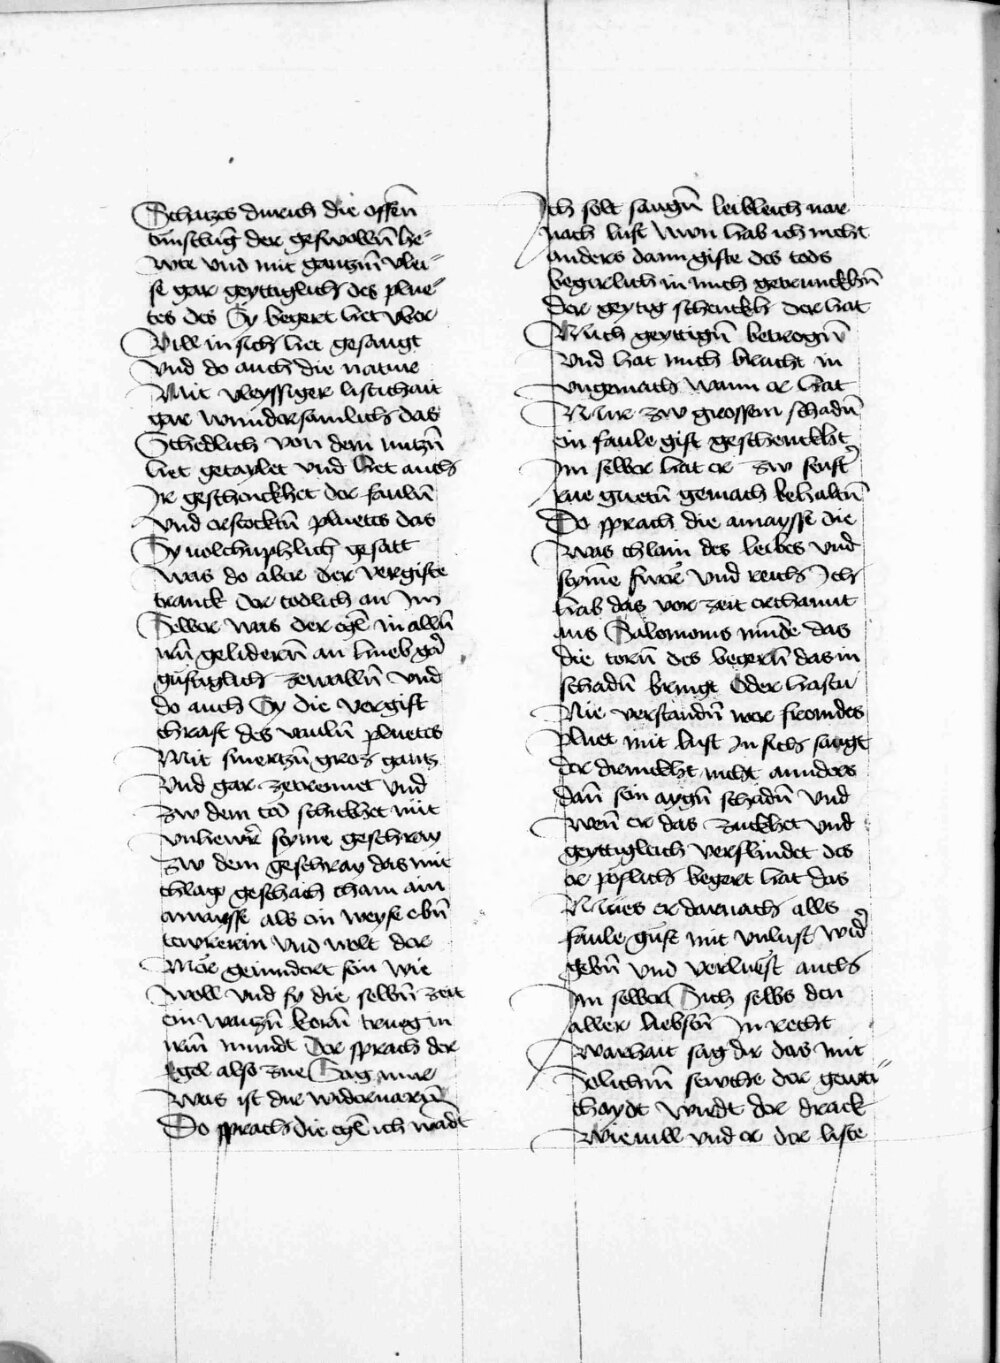 Schatzes durich die offen̄
tunschūg der geswollen̄ he⸗
wte vnd mit gantzm̄ vlei⸗
se gar geyttiglich des plue⸗
tes des Sy begert het vber
Vill in sich het gesaugt
vnd do auch die natuer
Mit vleyssiger listichait
gar wundersamlich das
Schedlich von dem nutzn̄
het getaylet vnd het auch
Ir geschenckhet der fauln̄
vnd erstocktn̄ pluettes das
Sy volchumlich gesatt
was do aber der vergifte
tranck der todlich an Jm
Selber was der egl̄ in alln̄
irn̄ gelidern̄ an hueb gar̄
giftiglich zewalln̄ vnd
do auch Sy die vergift
chraft des vauln̄ pluettes
Mit smertzn̄ gros gantz
Vnd gar zetrennet vnd
zw dem tod schickhet mit
vnhewr̄ seyme geschray
zw dem geschray das mit
chlag geschach cham ain
amaysse als ein weyse ebn̄
tewrerin vnd wolt der
Mer gemindert sein wie
woll vnd sy die selbn̄ zeit
ein waitzn̄ korn̄ trueg in
irm̄ mundt Der sprach der
Egel also zue Sag mir
Was ist dir widervarn̄
Do sprach die egl̄ ich wādt
Ich solt saugn̄ leibleich nar
nach lust Nun hab ich nicht
anders dann gifte des tods
begirlich in mich getrunckhn̄
der geytig schenckh der hat
Mich geyttign̄ betrogn̄
Vnd hat mich bracht in
vngemach wann er hat
Mir zw grossem schadn̄
ein faule gift geschenckht
Im selber hat er zw senft̄
rue guetn̄ gemach behaltn̄
Do sprach die amaysse die
Was chlain des leibes vnd
seyme swer vnd reich Ich
hab das vor zeit erchannt
aus Salomonis munde das
die torn̄ des begern̄ das in
schadn̄ bringt Oder hassn̄
Nie verstandn̄ wer fromdes
pluet mit lust In sich saugt
der drinckht nicht annders
dan̄ sein aygn̄ schadn̄ vnd
wen̄ er das zuckhet vnd
geyttigleich verslindet des
er poslich begert hat das
Mues er darnach alls
faule gift mit vnlust wid̄
gebn̄ vnd verliust auch
Im selber Sich selbs den
aller liebsten̄ In recht
Warhait sag dir das mit
Solichm̄ sewche der geyti⸗
chaydt wirdt der drack
Wie will vnd er der liste